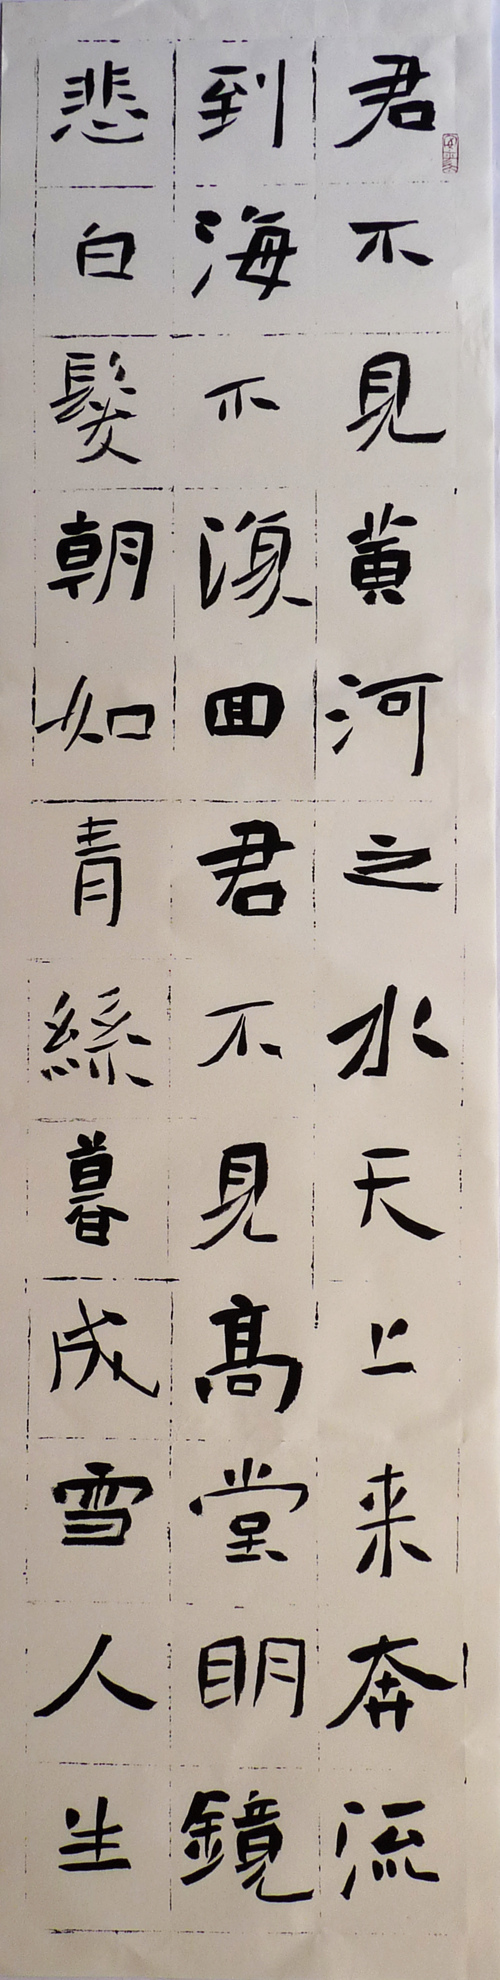 君不見黃河之水天上来奔流
到海不復回君不見高堂明鏡
悲白髮朝如青絲暮成雪人生